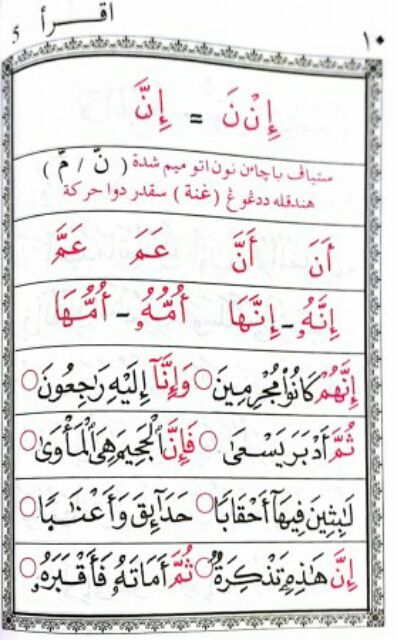 اقرأ 5
١٠
إِنْنَ = إِنَّ
ستياڤ باچاٴن نون اتو ميم شدة ( نّ / مّ )
هندقله ددڠوڠ ( غنة ) سقدر دوا حركة
أَنَ أَنَّ عَمَ عَمَّ
إِنَّهُۥ - إِنَّهَا أُمُّهُۥ - أُمُّهَا
إِنَّهُمْ كَانُوا۟ مُجْرِمِينَ ○ وَإِنَّآ إِلَيْهِ رَٰجِعُونَ ○
ثُمَّ أَدْبَرَ يَسْعَىٰ ○ فَإِنَّ ٱلْجَحِيمَ هِىَ ٱلْمَأْوَىٰ ○
لَٰبِثِينَ فِيهَآ أَحْقَابًا ○ حَدَآئِقَ وَأَعْنَٰبًا ○
إِنَّ هَٰذِهِۦ تَذْكِرَةٌ ○ ثُمَّ أَمَاتَهُۥ فَأَقْبَرَهُۥ ○